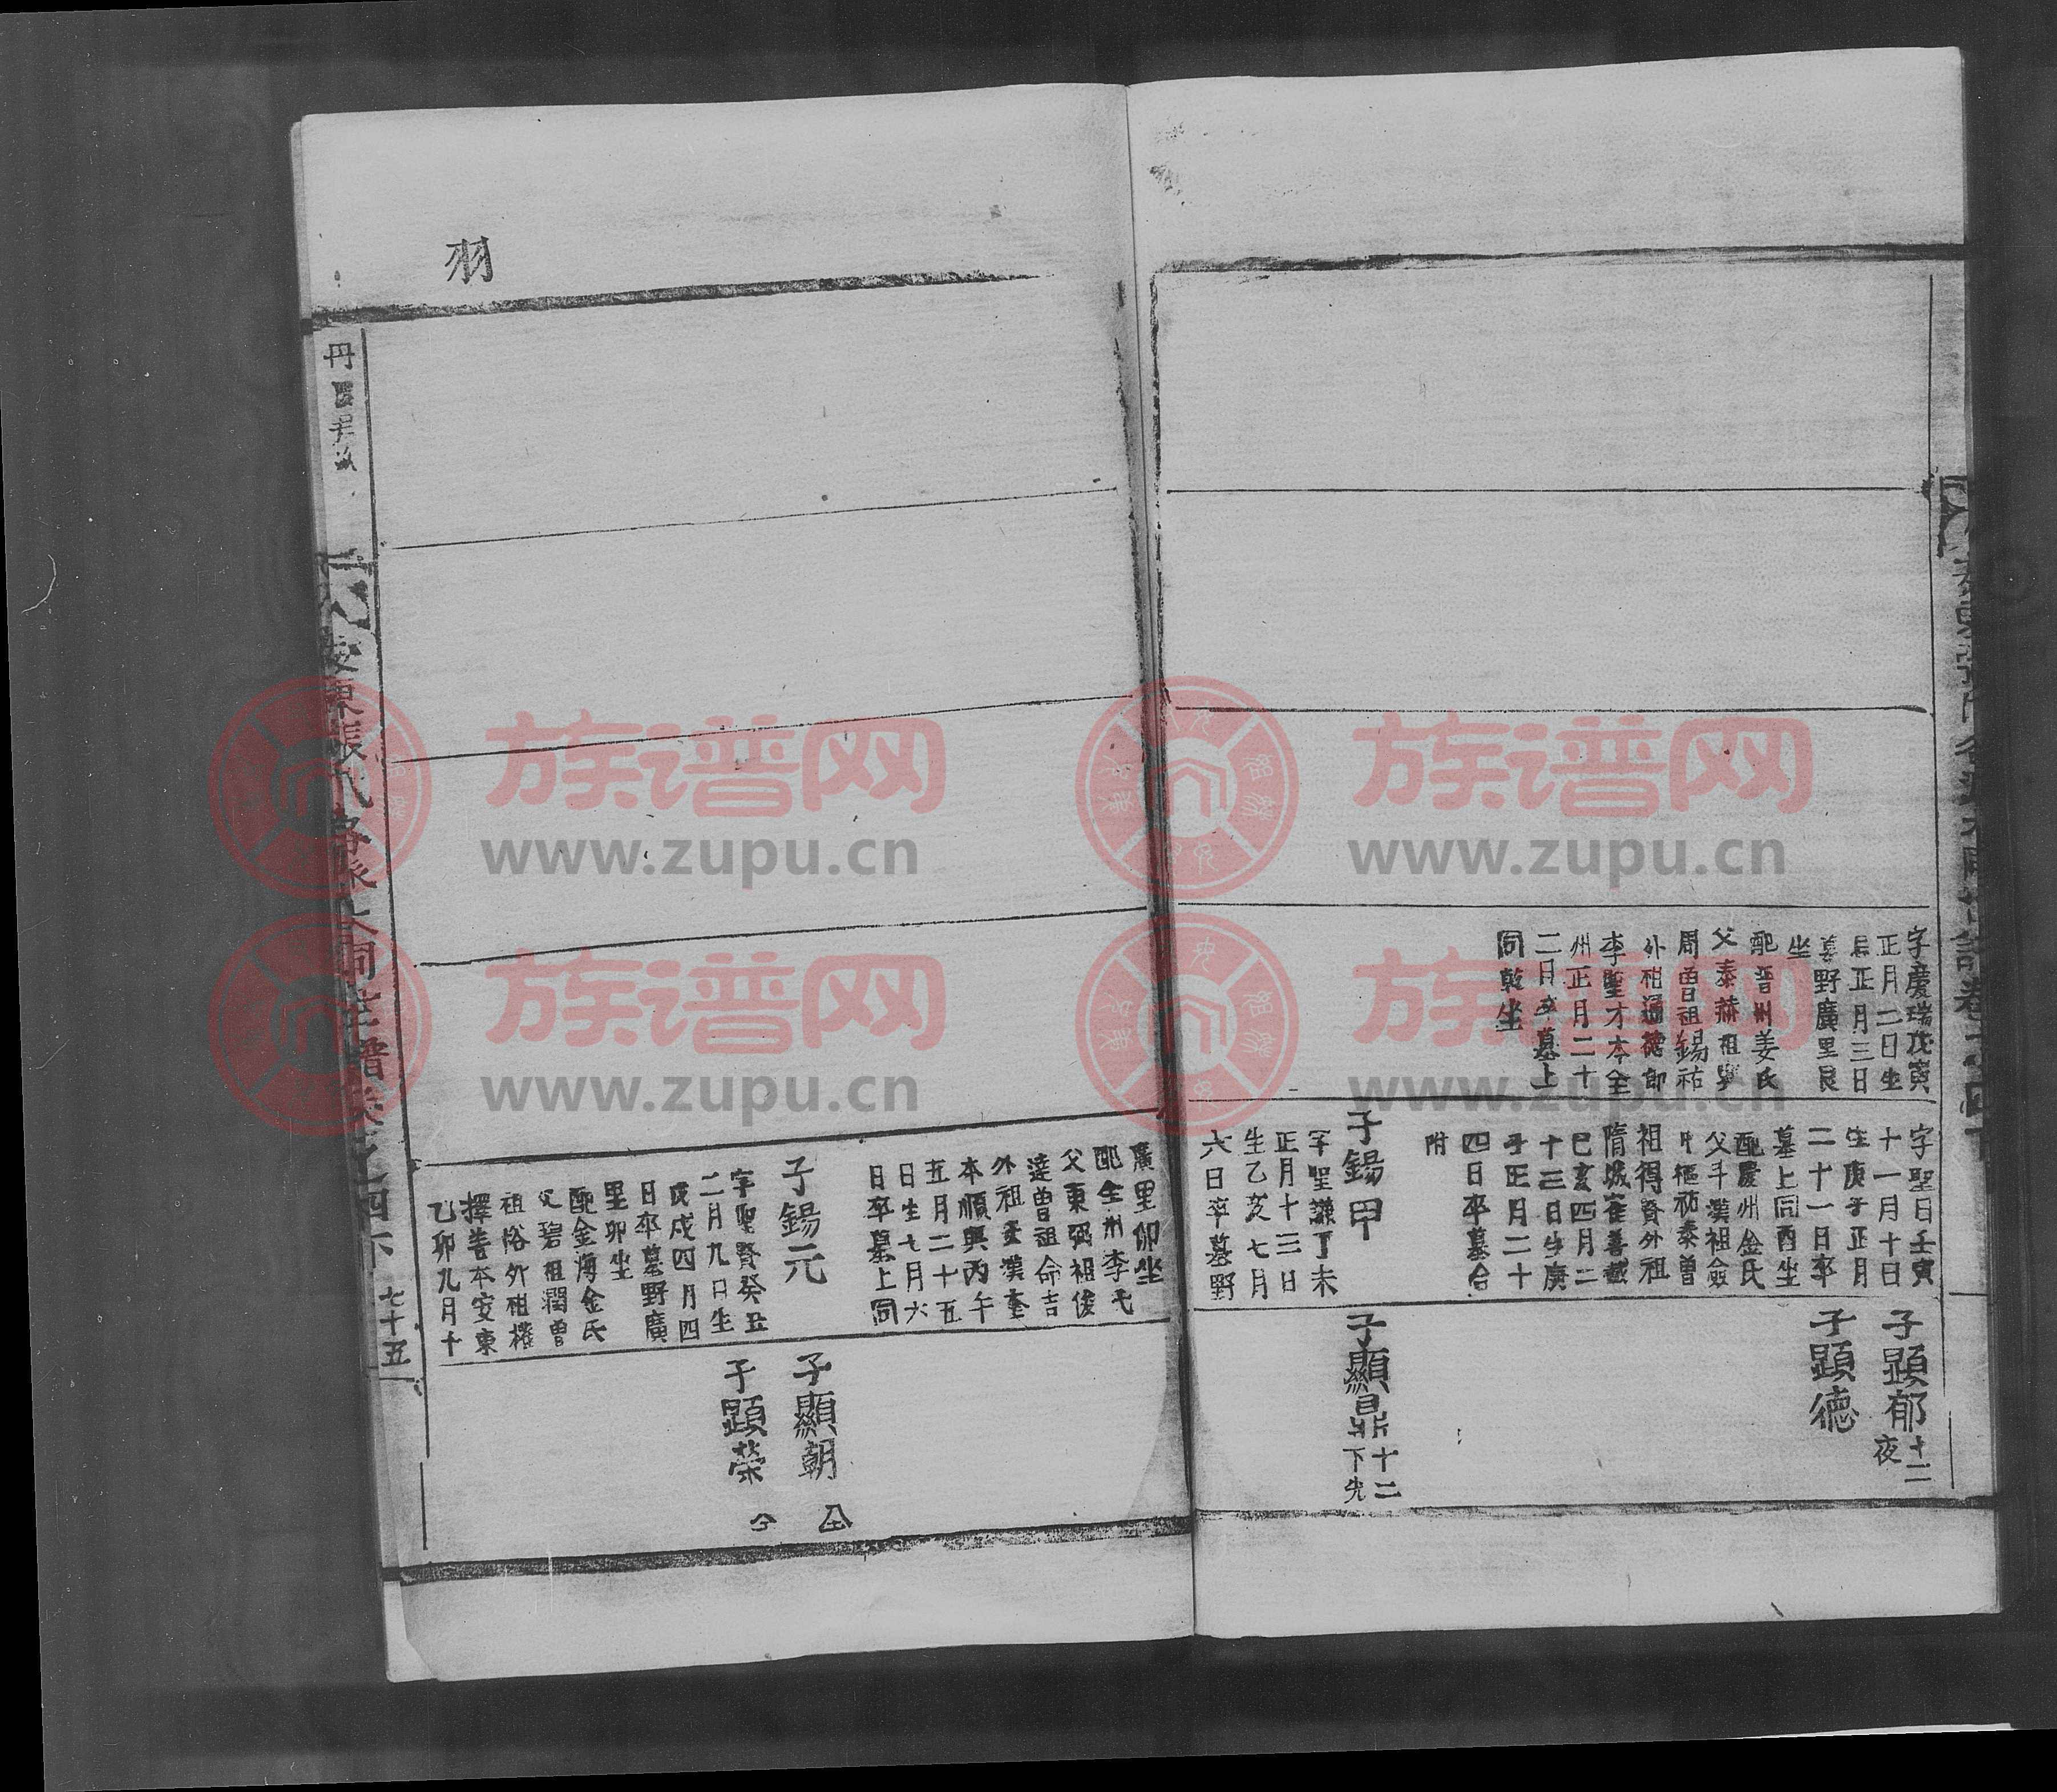 字慶瑞戊寅
正月二日生
正月三日
墓野廣里艮
坐
配晋州姜氏
父泰赫祖
周曾祖錫祐
外祖通德郎
李聖才本全
州正月二十
二月卒墓上
同乾坐
字聖日壬寅
十一月十日
生庚子正月
二十一日卒
墓上同酉坐
配慶州金氏
父斗漢祖僉
中樞祐泰曾
祖得資外祖
隋城崔善戩
己亥四月二
十三日生庚
子正月二十
四日卒墓合
附
子錫甲
字聖謙丁未
正月十三日
生乙亥七月
六日卒墓野
子顕郁 十二 夜
子顕德
子顯鼎 十二 下光
羽
廣里卯坐
配全州李氏
父東弼祖俊
達曾祖命吉
外祖 漢奎
本順興丙午
五月二十五
日生七月六
日卒墓上同
子錫元
字聖賢癸丑
二月九日生
戊戌四月四
日卒墓野廣
里卯坐
配金海金氏
父碧祖潤曾
祖俗外祖權
擇善本安東
乙卯九月十
子顯朝 仝
子顕榮 仝
安東張氏各派之同 譜卷之四下 七十五
族谱网
www.zupu.cn
族谱网
www.zupu.cn
族谱网
www.zupu.cn
族谱网
www.zupu.cn